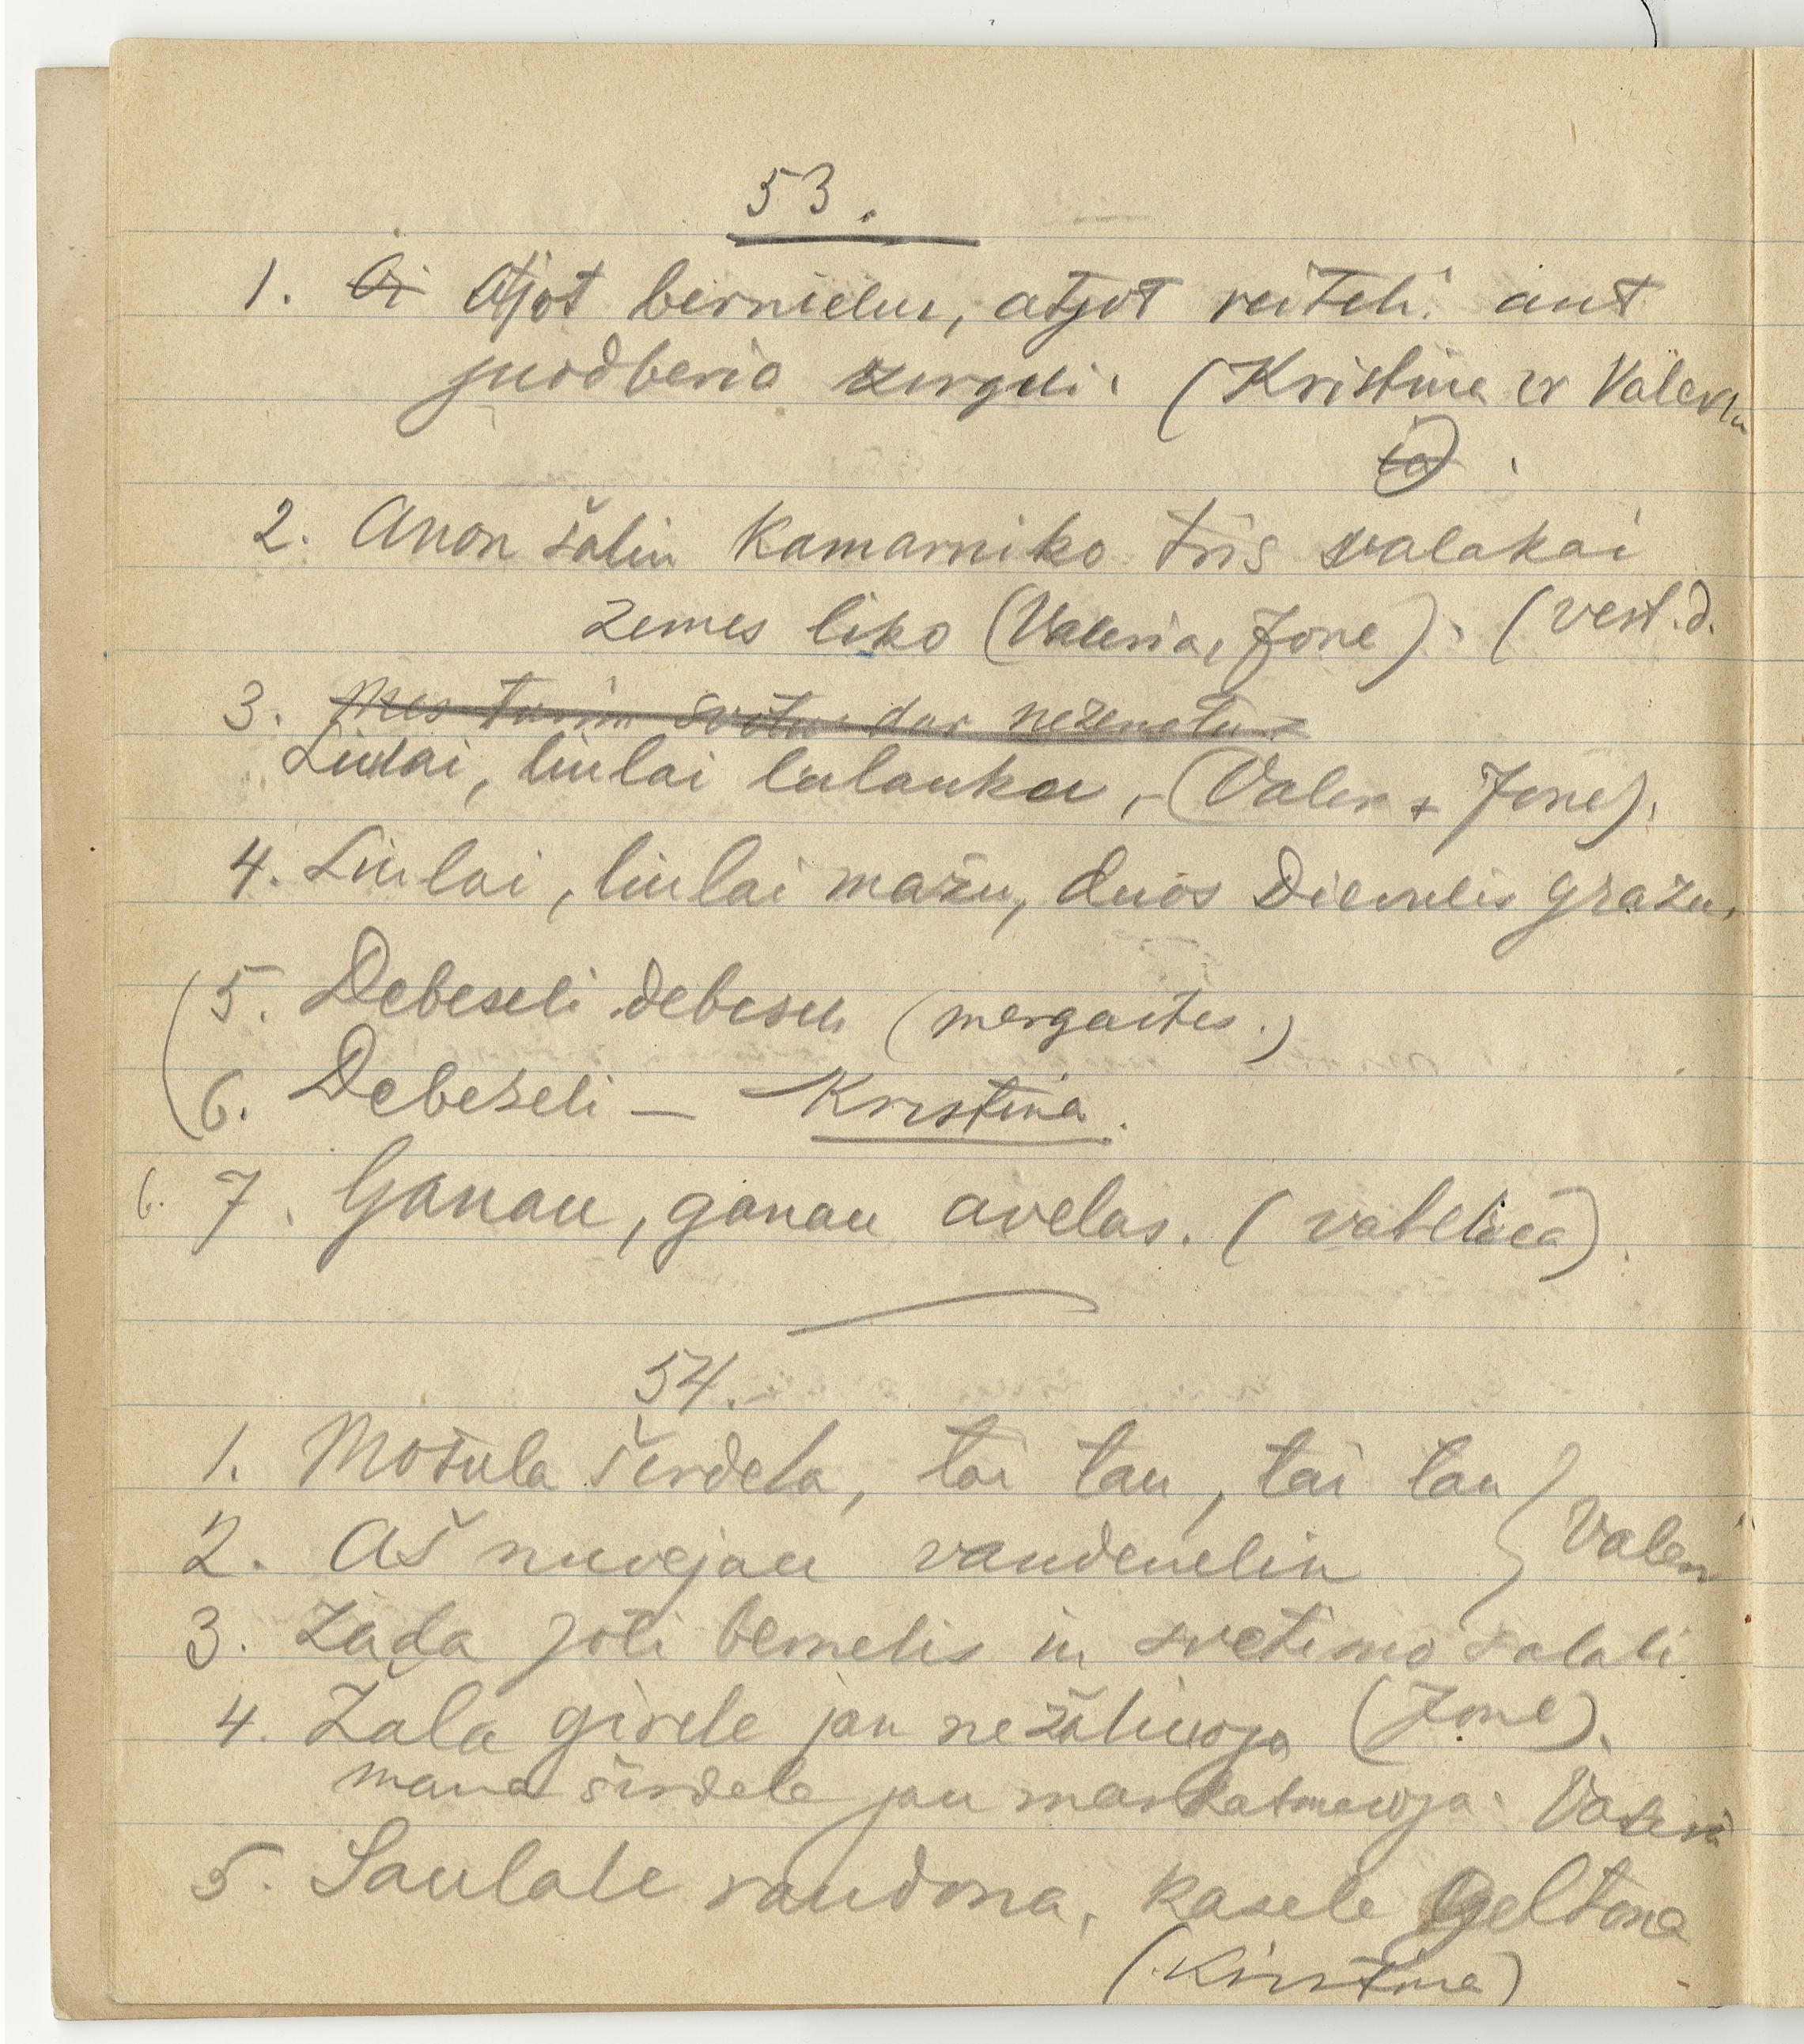 53.
1. Oi Atjot bernielu, atjot reiteli ant
juodberia zirgeli. (Kristina ir Valeria
ia).
2. Anon šalin Kamarniko tris valakai
zemes liko (Valeria, Jone). (vest. d.
3. Mes turim svotu dar nezenotu
Liulai, liulai lulauka, - (Valer + Jone).
4. Liulai, liulai mažu, duos Dievulis grazu.
(5. Debeseli debeseli (mergaites.)
(6. Debeseli — Kristina.
6. 7. Ganau, ganau avelas. ( )
54.
1. Motula širdela, tai tau, tai tau
2. Aš nuvejau vandenelin } Valer
3. Žada joti bernelis in svetimo salali
4. Žala girele jau nežaliuoja (Jone).
mana širdele jau
Valeria
5. Saulale raudona, kasele geltona
(Kristina)